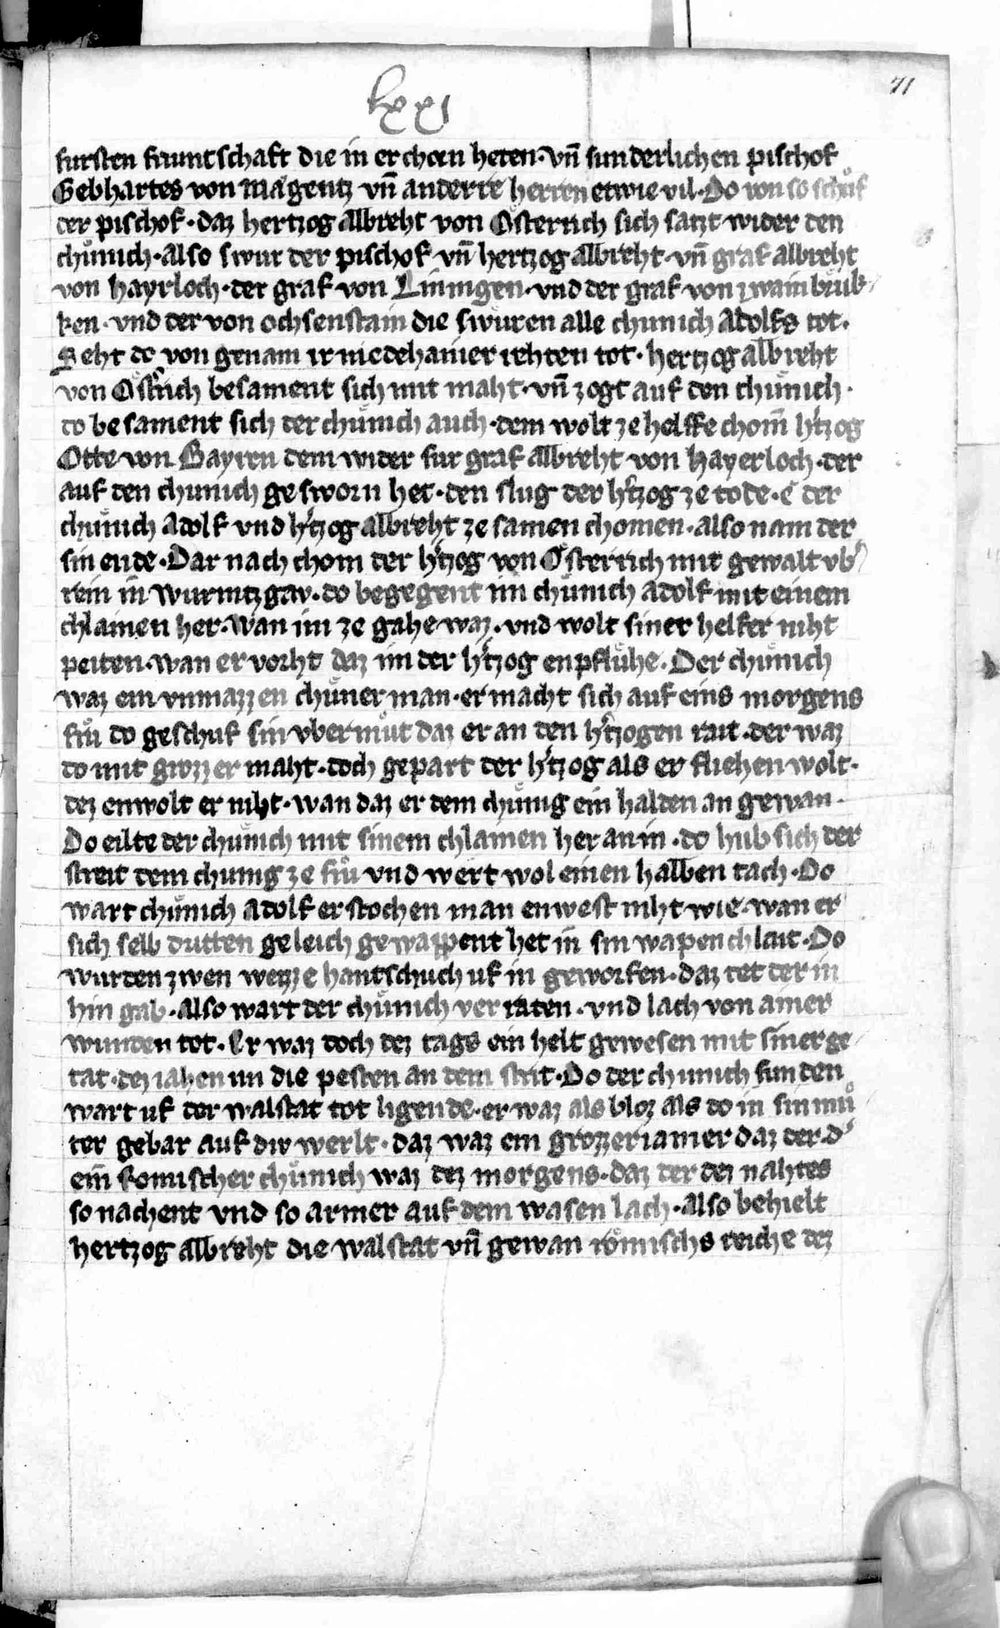 lxxi
71
fursten frauntschaft die in erchorn heten · vn̄ sunderlichen pischof
Gebhartes von Magentz vn̄ anderre herren etwie vil · Do von so schůf
der pischof · daz hertzog Albreht von Ősterrich sich satzt wider den
chůnich · Also swur der pischof vn̄ hertzog Albreht · vn̄ graf albreht
von hayrloch · der graf von Liningen · vnd der graf von zwainbrůk
ken · vnd der von ochsenstain die swůren alle chunich Adolfs tot ·
Seht do von genam ir nie dehainer rehten tot · hertzog albreht
von Ősterrich besament sich mit maht · vn̄ zogt auf den chůnich ·
do besament sich der chůnich auch · dem wolt ze helffe chom̄ h'tzog
Otte von Bayren dem wider fur graf Albreht von hayerloch · der
auf den chunich gesworn het · den slug der h'tzog ze tode · e der
chůnich Adolf vnd h'tzog albreht ze samen chomen · also nam der
sin ende · Dar nach chom der h'tzog von Ősterrich mit gewalt vb'
rein in̄ Wurmtzgav · do begegent im chůnich Adolf mit einem
chlainen her · Wan im ze gahe waz · vnd wolt siner helfer niht
peiten · wan er vorht daz im der h'tzog enpfluhe · Der chůnich
waz ein vnmazzen chůner man · er macht sich auf eins morgens
frů do geschuf sin vbermůt daz er an den h'tzogen rait · der waz
do mit grozzer maht · doch gepart der h'tzog als er fliehen wolt ·
dez enwolt er niht · wan daz er dem chůnig ein halden an gewan ·
Do eilte der chůnich mit sinem chlainen her an in · do hub sich der
streit dem chunig ze frů vnd wert wol einen halben tach · Do
wart chůnich Adolf erstochen man enwest niht wie · wan er
sich selb dritten geleich gewappent het in̄ sin wapenchlait · Do
wurden zwen weizze hantschuch uf in geworfen · daz tet der in
hin gab · Also wart der chůnich verraten · vnd lach von ainer
wunden tot · Er waz doch dez tags ein helt gewesen mit siner ge
tat · dez iahen im die pesten an dem strit · Do der chunich funden
wart uf der walstat tot ligende · er waz als bloz als do in sin mů
ter gebar auf dir werlt · daz waz ein grozzer iamer daz der d'
ein̄ Romischer chůnich waz dez morgens · daz der dez nahtes
so nachent vnd so armer auf dem wasen lach · Also behielt
hertzog Albreht die walstat vn̄ gewan rőmischs reiche dez